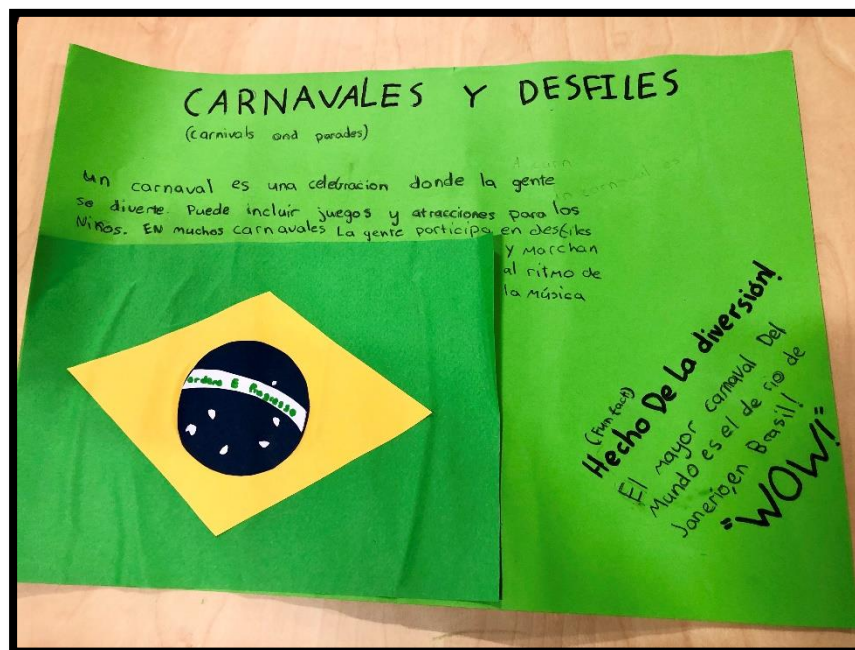 CARNAVALES Y DESFILES
(carnivals and parades)
un carnaval es una celebracion donde la gente
se divierte. Puede incluir juegos y atracciones para los
Niños. EN muchos carnavales La gente participa en desfiles
y marchan
al ritmo de
la Música
(Fun fact)
Hecho De la diversión!
El mayor carnaval Del
Mundo es el de rio de
Janerio, en Brasil!
"WOW!"
ordem E Progresso